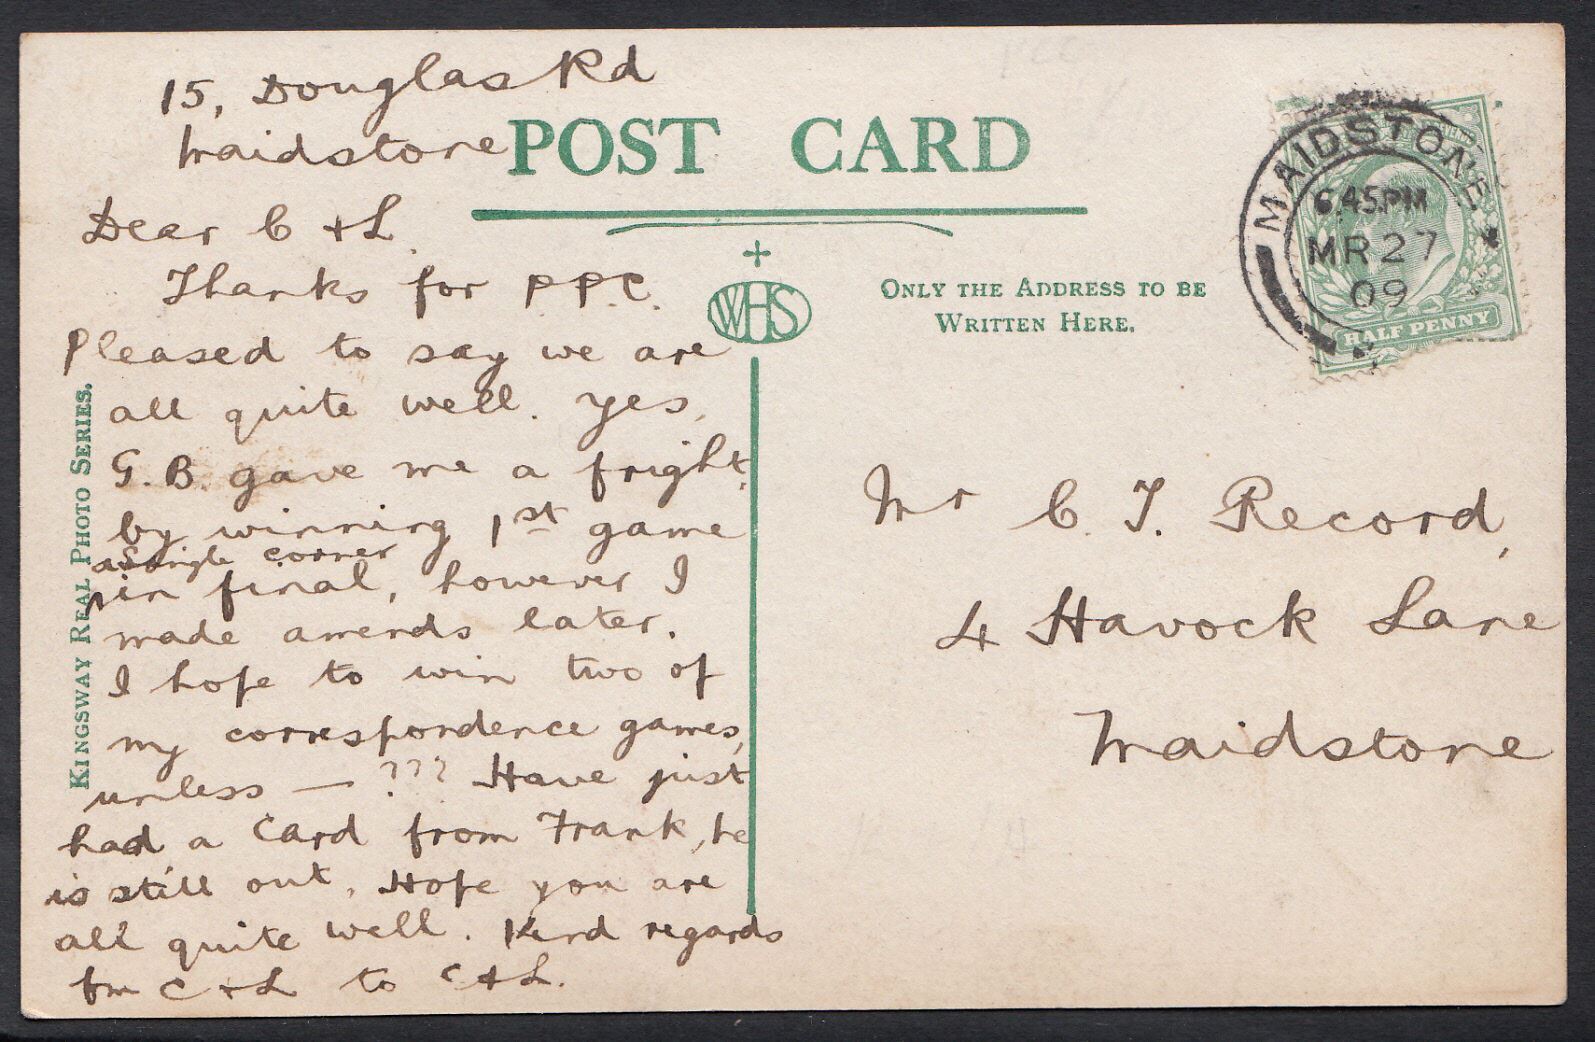 15, Douglas Rd
Maidstone
Dear C + L.
Thanks for P P C.
Pleased to say we are
all quite well. Yes,
G. B. gave me a fright,
by winning 1st game
a single corner
in final, however I
made amends later.
I hope to win two of
my correspondence games,
unless — ??? Have just
had a card from Frank, he
is still out. Hope you are
all quite well. Kind regards
fm C + L to C + L.
KINGSWAY REAL PHOTO SERIES.
POST CARD
WHS
ONLY THE ADDRESS TO BE
WRITTEN HERE.
MAIDSTONE
6.45PM
MR 27
09
HALF PENNY
Mr C. T. Record,
4 Havock Lane
Maidstone